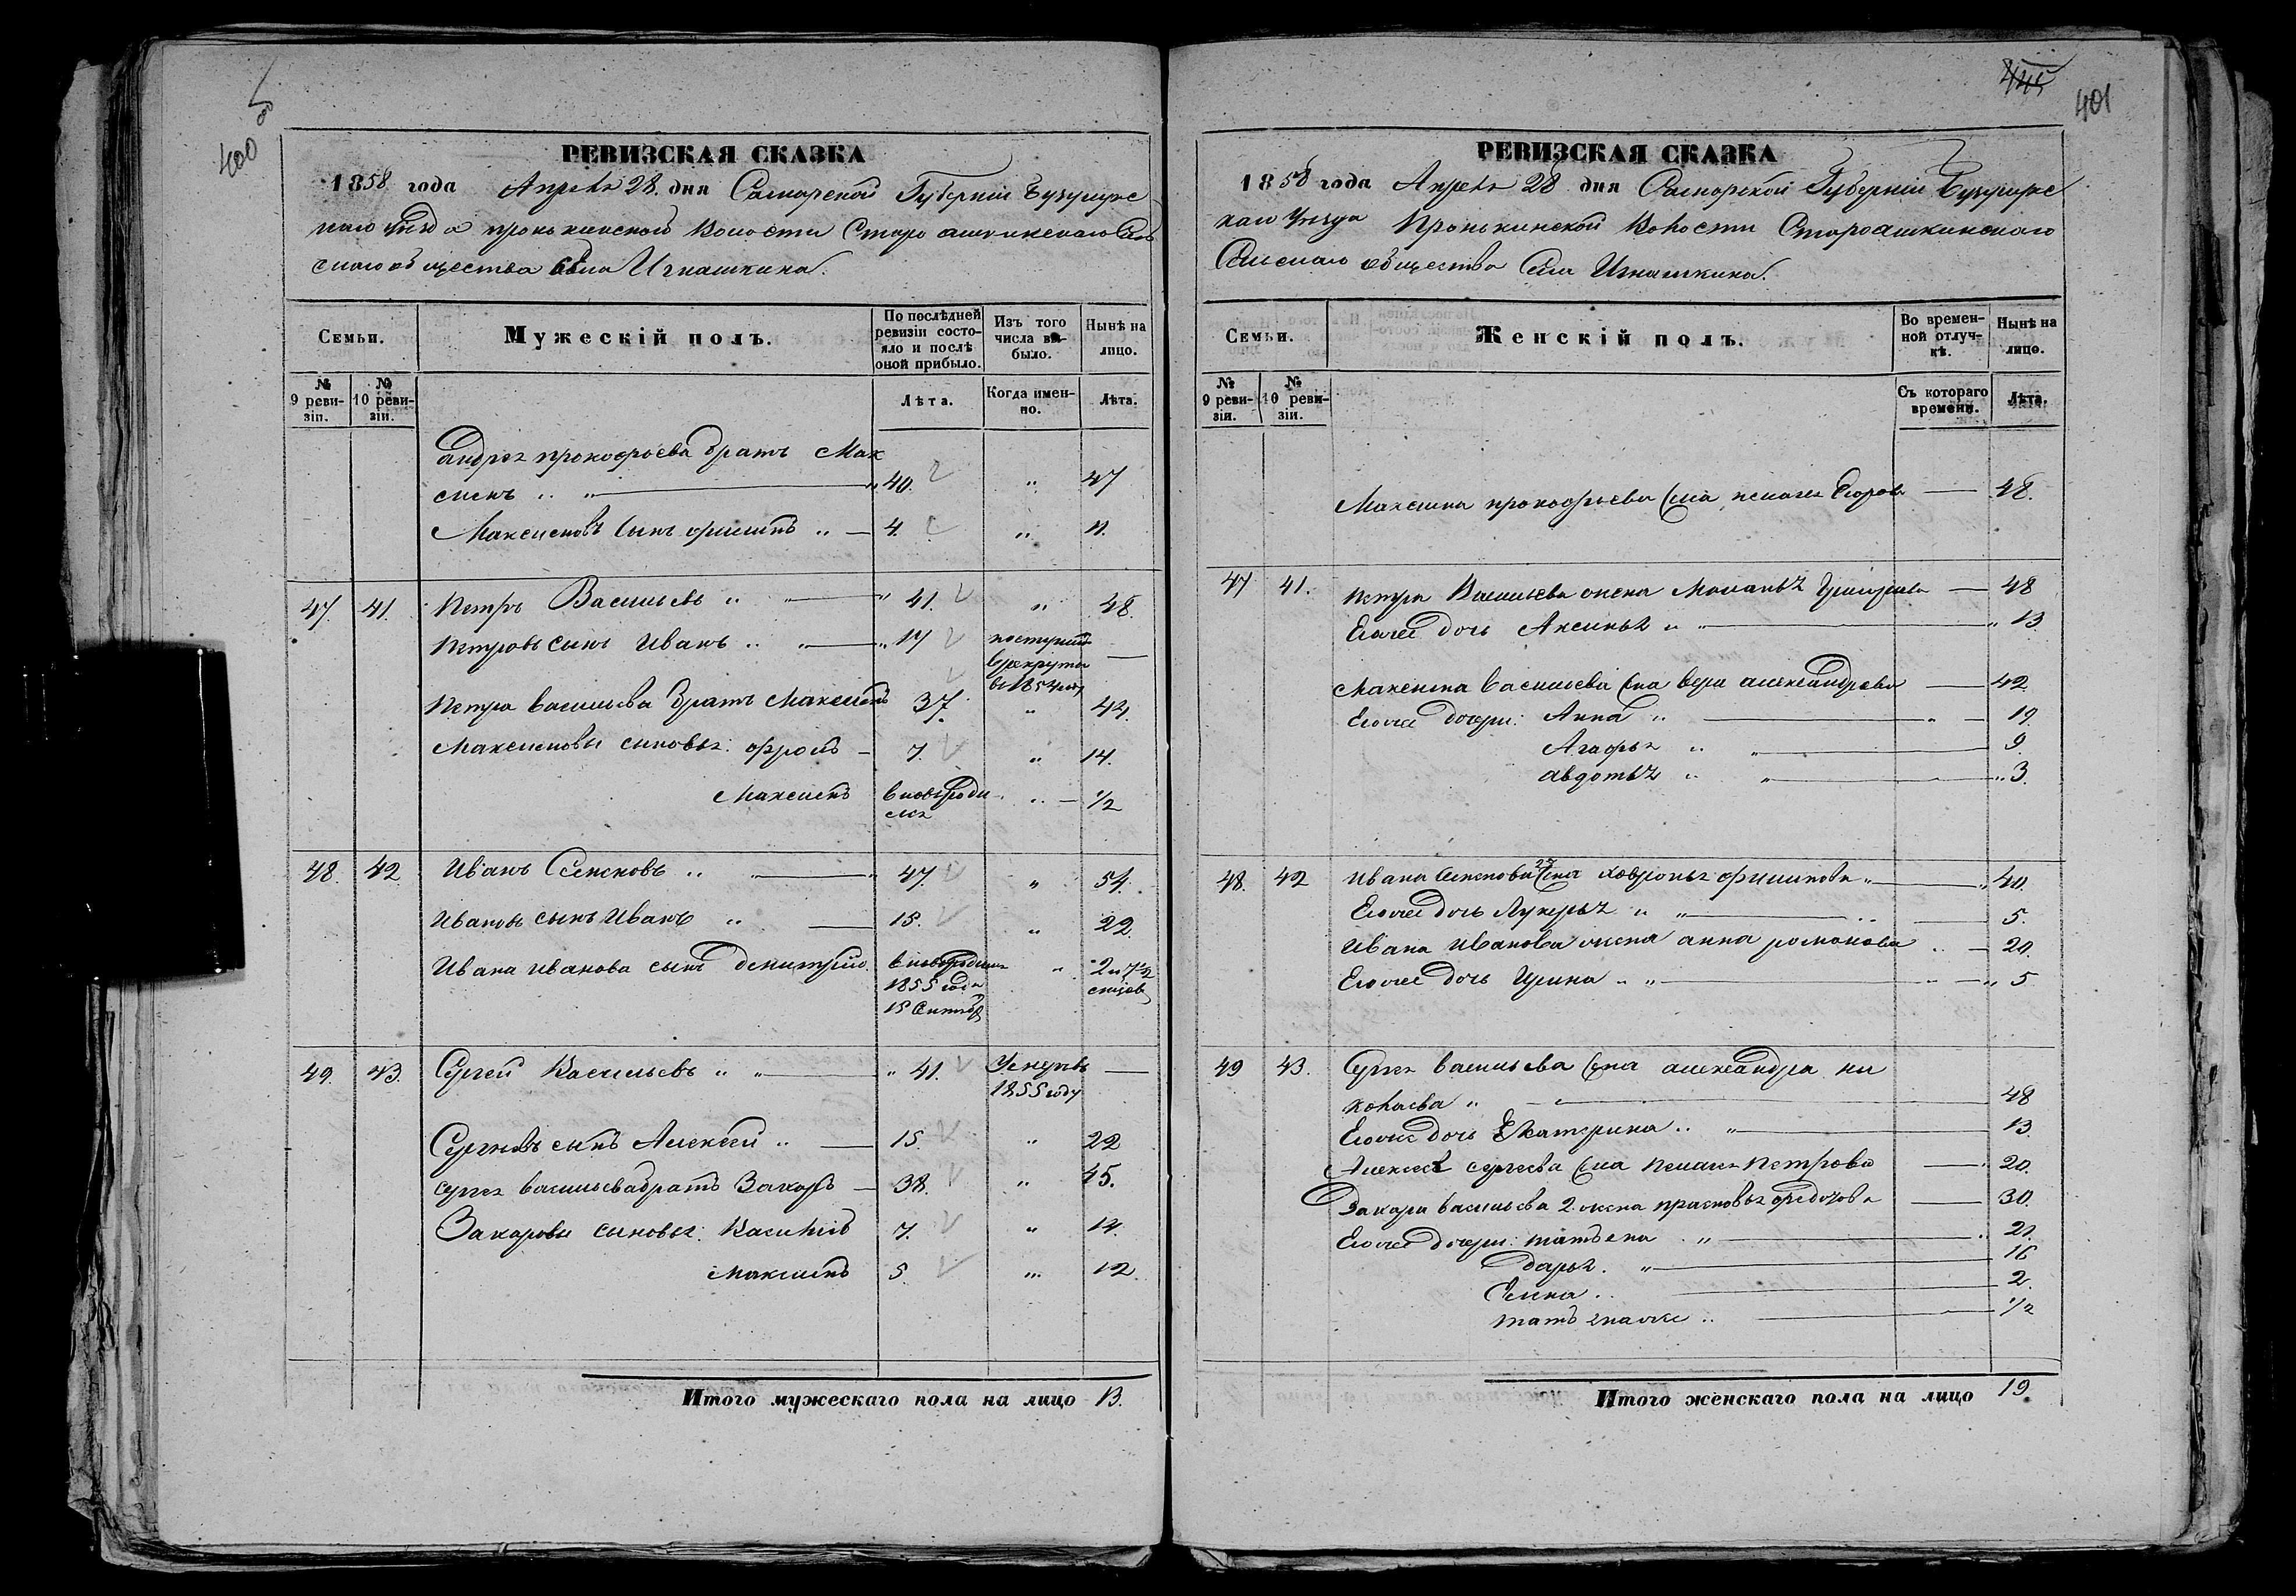 400
РЕВИЗСКАЯ СКАЗКА
1858 года Апреля 28 дня Самарской Губернии Бугурус
лано уезда Пронькинской Волости Старо ашкинскаго Сель
скаго общества Села Игнашкина.
Семьи. Мужескій полъ. По послѣдней ревизіи состояло и послѣ оной прибыло. Изъ того числа выбыло. Нынѣ на лицо.
№ 9 ревизіи. № 10 ревизіи. Лѣта. Когда именно. Лѣта.
Андрея прокофьева братъ Мак
симъ 40. 47
Максимовъ сынъ филипъ 4. 11.
47. 41. Петръ Васильевъ 41. 48.
Петровъ сынъ Иванъ 17 поступилъ
в рекруты
в 1854 году
Петра васильева братъ Максимъ 37. 44.
Максимовы сыновья: Фролъ 7. 14.
Максимъ вновь роди 1/2
лся
48. 42. Иванъ Семеновъ 47. 54.
Ивановъ сынъ Иванъ 15. 22.
Ивана иванова сынъ дмитрій вновь родился 2 и 7 1/2
1855 года месяцов
15 Сентября
49. 43. Сергей Васильевъ 41. Умеръ в
1855 году
Сергеевъ сынъ Алексей 15. 22
сергея васильева братъ Захаръ 38. 45.
Захаровы сыновья: Василій 7. 14.
Максимъ 5. 12
Итого мужескаго пола на лицо 13.
445
401
РЕВИЗСКАЯ СКАЗКА
1858 года Апреля 28 дня Самарской Губерніи Бугурус
лано Уезда Пронькинской Волости Староашкинскаго
Сельскаго общества Села Игнашкина.
Семьи. Женскій полъ. Во временной отлучкѣ. Нынѣ на лицо.
№ 9 ревизіи. № 10 ревизіи. Съ котораго времени. Лѣта.
Максима прокофьева жена пелагея Егорова 48.
47 41. петра Васильева жена Маланья Григорьева 48
Егоже дочь Аксинья 13.
Максима васильева жена вера александрова 42
Егоже дочери: Анна 19.
Агафья 9.
авдотья 3.
48. 42 Ивана семенова 2я жена хавронья филипова 40.
Егоже дочь Лукерья 5.
Ивана Иванова жена анна романова 20.
Егоже дочь Ирина 5
49 43. Сергея васильева жена александра ни
колаева 48
Егоже дочь Екатерина 13.
Алексея сергеева жена пелагея петрова 20.
Захара васильева 2. жена прасковья федотова 30.
Егоже дочери: татьяна 21.
дарья. 16
Елена 2.
татьяна же 1/2
Итого женскаго пола на лицо 19.